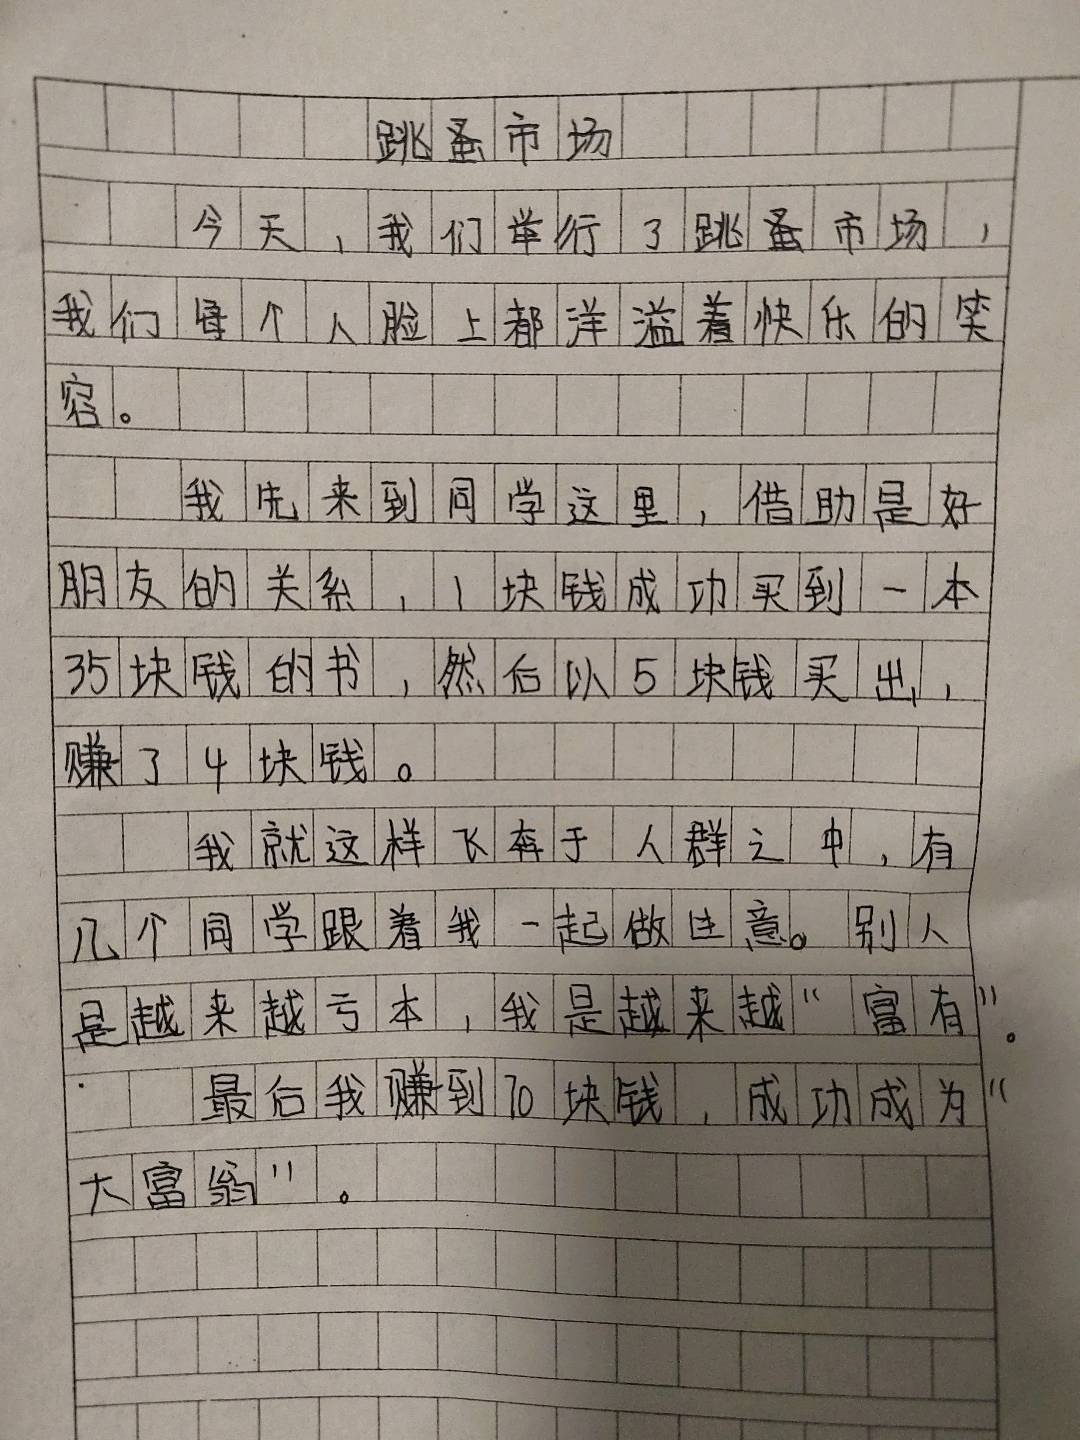 跳蚤市场
今天，我们举行了跳蚤市场，
我们每个人脸上都洋溢着快乐的笑
容。
我先来到同学这里，借助是好
朋友的关系，1块钱成功买到一本
35块钱的书，然后以5块钱买出，
赚了4块钱。
我就这样飞奔于人群之中，有
几个同学跟着我一起做生意。别人
是越来越亏本，我是越来越“富有”。
最后我赚到70块钱，成功成为“
大富翁”。